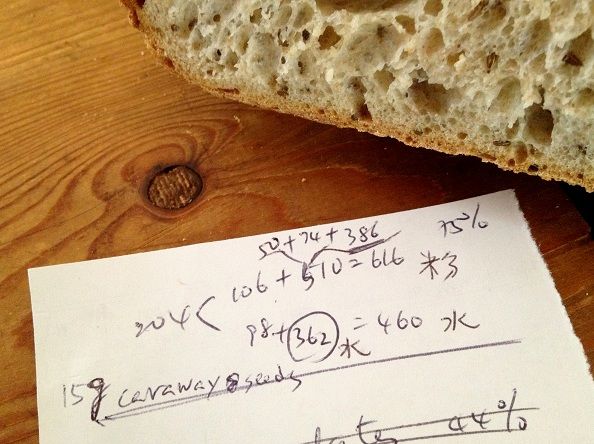 50+74+386 75%
106+510=616 粉
204<
98+362=460 水
水
15g caraway seeds
44%